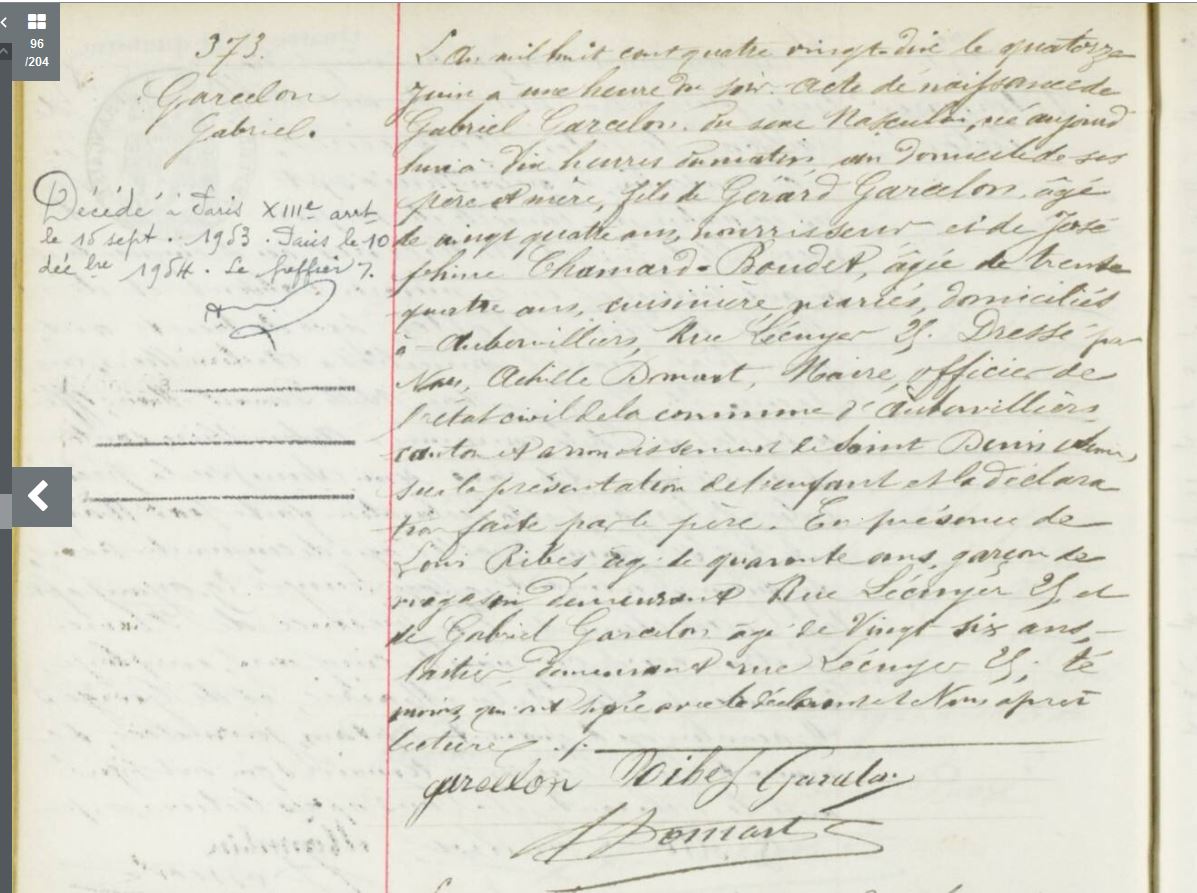 96
/204
373.
Garcelon
Gabriel.
Décédé à Paris XIIIe arrt
le 15 sept. 1953. Paris le 10
décbre 1954. Le Greffier
L'an mil huit cent quatre vingt-dix le quatorze
Juin à une heure du soir. Acte de naissance de
Gabriel Garcelon, du sexe Masculin, né aujourd
hui à dix heures du matin au domicile de ses
père et mère, fils de Gérard Garcelon, âgé
de vingt quatre ans, nourrisseur et de José
phine Chamard-Boudet, âgée de trente
quatre ans, cuisinière, mariés, domiciliés
à Aubervilliers, Rue Lécuyer 25. Dressé par
Nous, Achille Domart, Maire, officier de
l'état civil de la commune d'Aubervilliers
canton et arrondissement de Saint Denis (Seine)
sur la présentation de l'enfant et la déclara
tion faite par le père. En présence de
Louis Ribes âgé de quarante ans, garçon de
magasin demeurant Rue Lécuyer 25 et
de Gabriel Garcelon âgé de Vingt six ans,
laitier, demeurant rue Lécuyer 25, té
moins, qui ont signé avec le déclarant et Nous après
lecture ./.
garcelon Ribes Garcelon
Domart